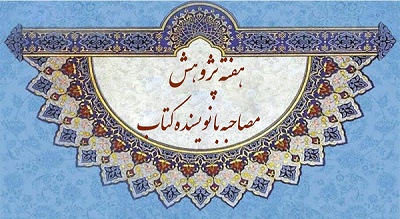 هفته پژوهش
مصاحبه با نویسنده کتاب